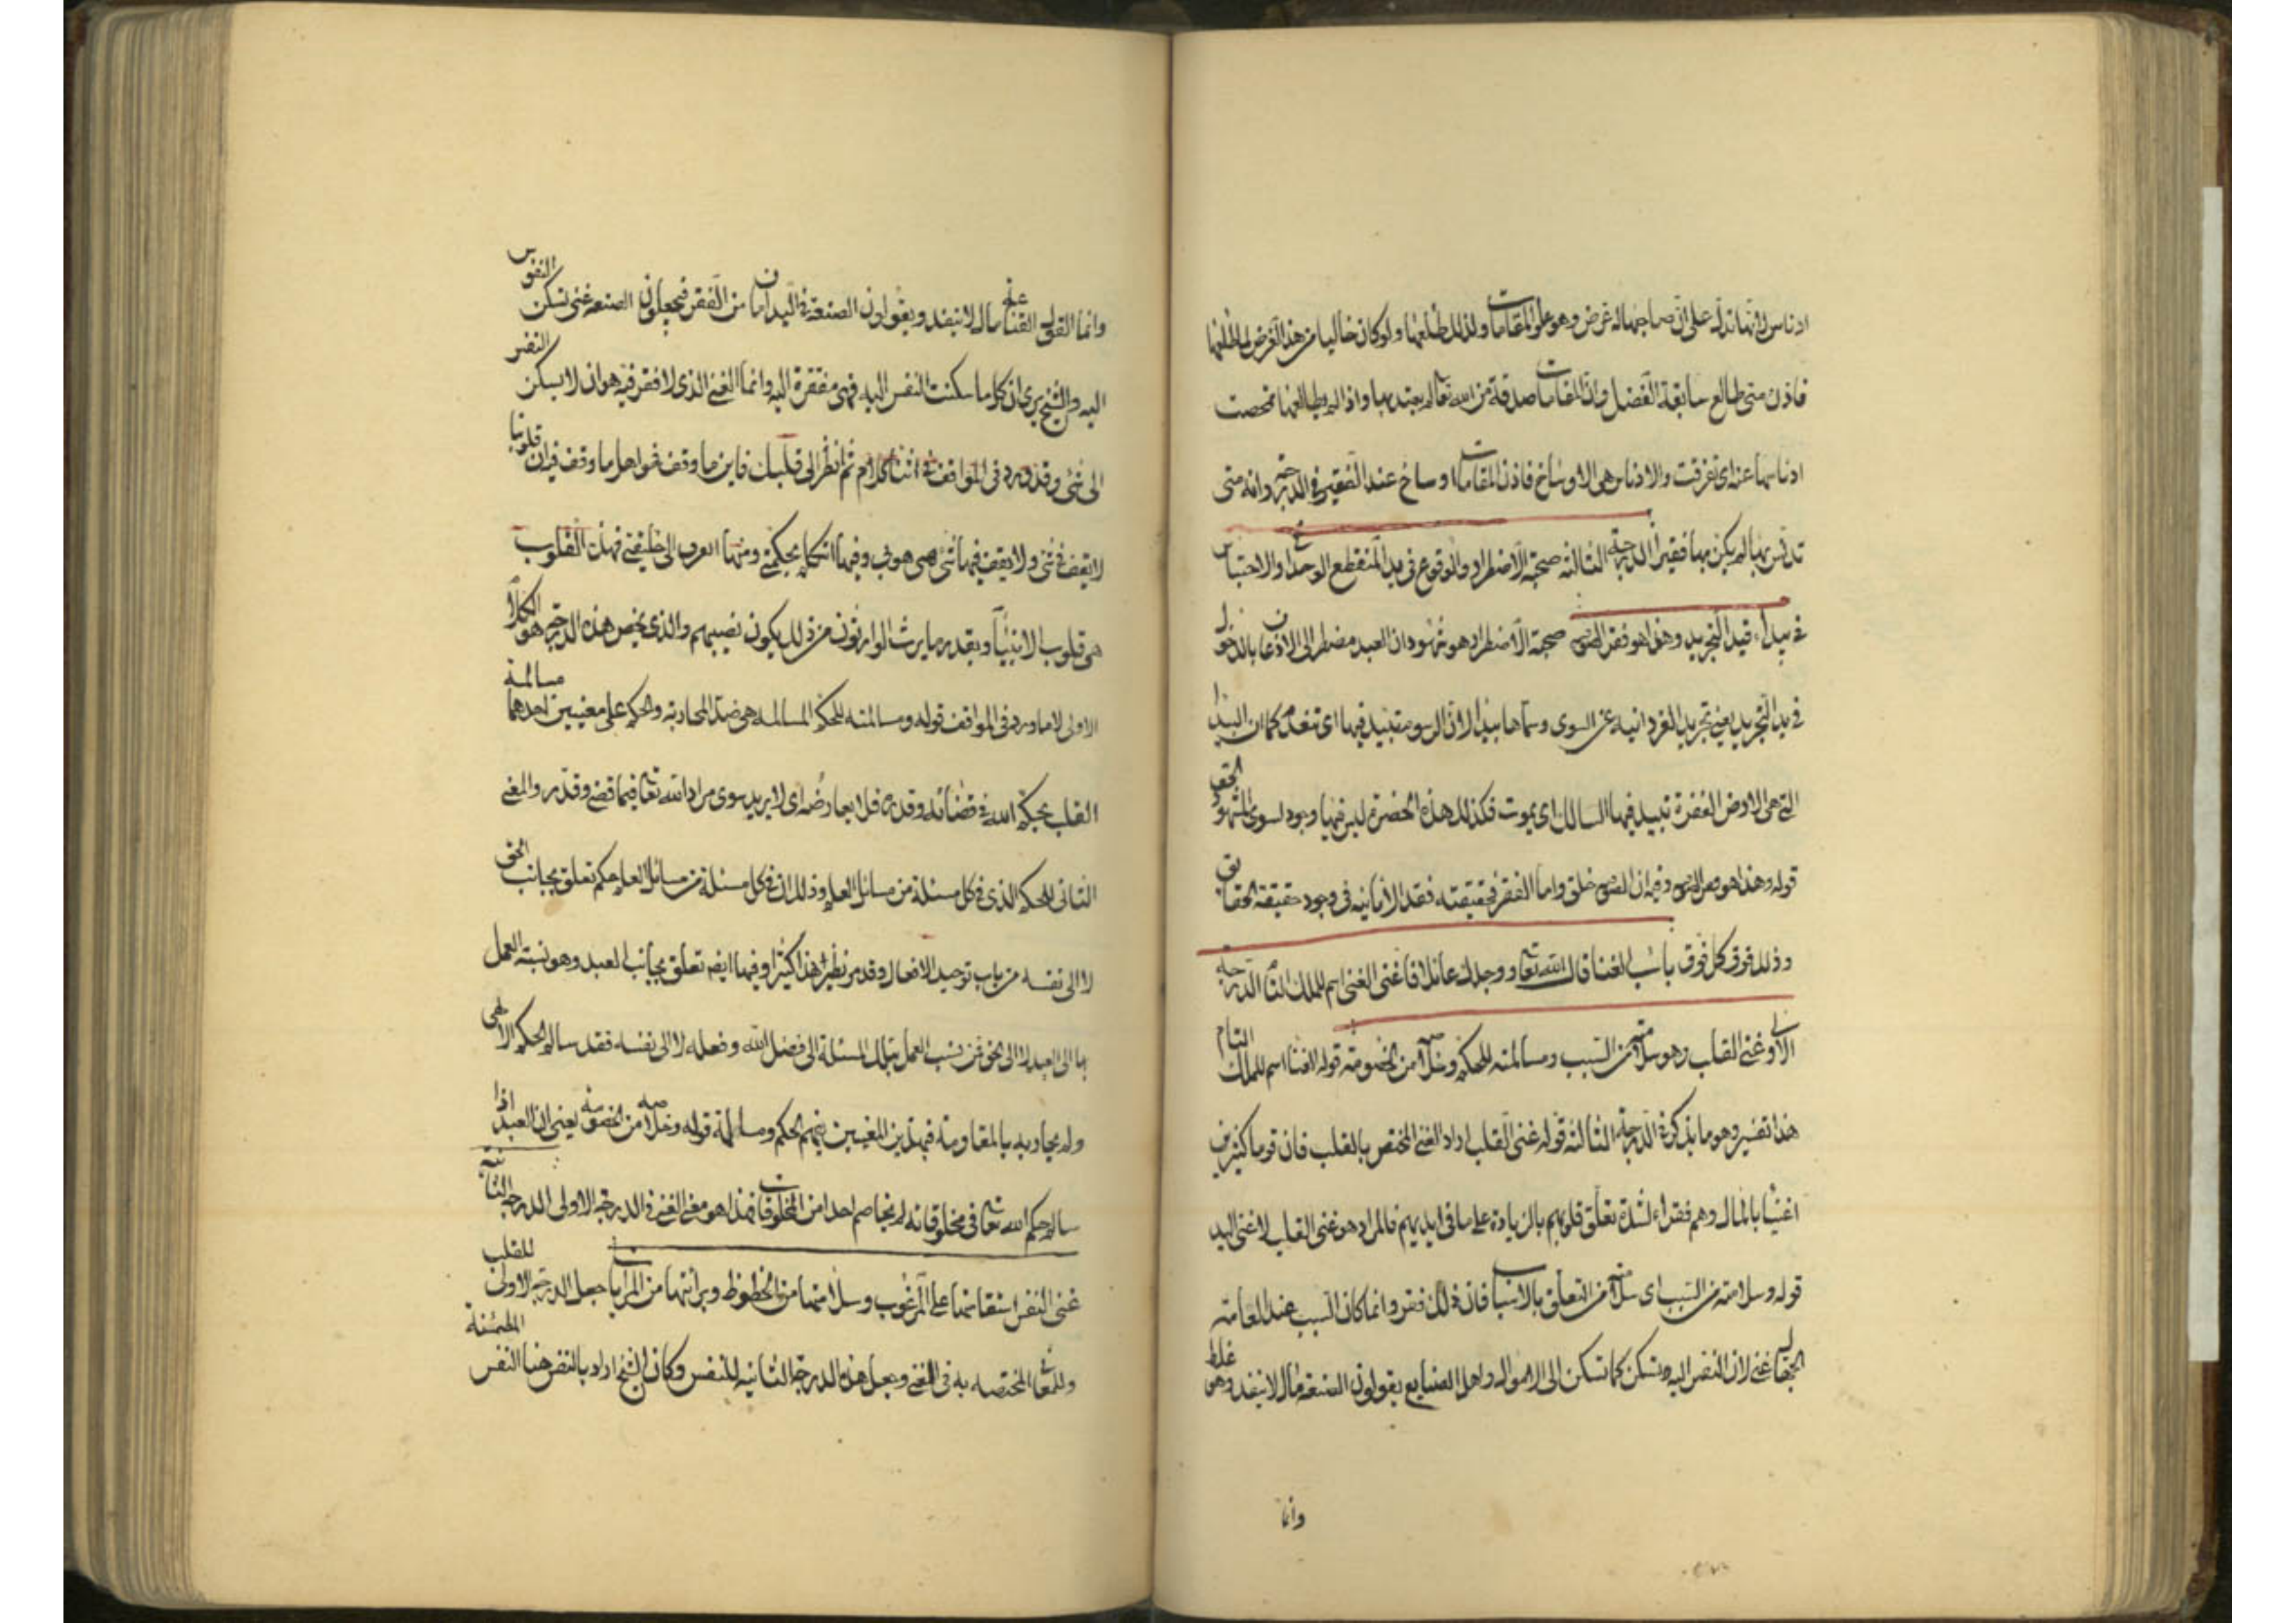 ادناس لانها تدل على ان صاحبها له غرض وهو علو المقامات ولذلك طلعها ولو كان خاليا من هذا الغرض لما طلعها
فاذن متى طالع سابقة الفضل وان المقامات صدقة من الله تعالى لم يعتد بها واذا لم يطالعها تمحصت
ادناسها عنه اى تفرقت والادناس هى الاوساخ فاذن المقامات اوساخ عند الفقير فى الدرجة وانه متى
تدنس بها لم يكن بها فقيرا الدرجة الثالثة صحة الاضطرار والوقوع فى يد المنقطع الوحدانى والاحتباس
فى بيداء قيد التجريد وهذا هو فقر الصوفية صحة الاضطرار هو شهود ان العبد مضطر الى الاذعان بالدخول
فى يد التجريد يعنى تجريد الفردانية عن السوى وسماها بيدا لان الرسوم تبيد فيها اى تنعدم كما ان البيدا
التى هى الارض القفرة تبيد فيها السالك اى يموت فكذلك هذه الحضرة ليس فيها وجود لسوى المشهود الحق
قوله وهذا هو فقر الصوفية وفيه ان الصوفية خلق واما الفقر فحقيقته فقد الانانية فى وجود حقيقة الحقائق
وذلك فوق كل فوق باب الغنا قال الله تعالى ووجدك عائلا فاغنى الغنى اسم للملك التام الدرجة
الاولى غنى القلب وهو سلامته من السبب ومسالمته للحكم وخلاصه من الخصومة قوله الغنا اسم للملك التام
هذا تفسير وهو ما يذكر فى الدرجة الثالثة قوله غنى القلب اراد الغنى المختص بالقلب فان قوما كثيرين
اغنيا بالمال وهم فقراء لشدة تعلق قلوبهم بالزيادة على ما فى ايديهم فالمراد هو غنى القلب لا غنى اليد
قوله وسلامته من السبب اى سلامته من التعلق بالاسباب فان ذلك فقر وانما كان السبب عند العامة
الجهال غنى لان النفس اليه تسكن كما تسكن الى الاموال واهل الصنايع يقولون الصنعة مال لا ينفد وهى غلط
وانما
وانما القول القناعة مال لا ينفد ويقولون الصنعة فى اليد امان من الفقر فيجعلون الصنعة غنى تسكن النفوس
اليه والشيخ يرى ان كل ما سكنت النفس اليه فهى مفتقرة اليه وانما الغنى الذى لا فقر فيه هو ان لا يسكن النفس
الى شئ وقد ورد فى المواقف فى اثنا كلام ثم انظر الى قلبك فاين ما وقف فهو اهل ما وقف فيه ان قلوبنا
لا يقف فى شئ ولا يقف فيها شئ هى هو فى وفيها اتكلم بحكمتى ومنها اتعرف الى خليقتى فهذه القلوب
هى قلوب الانبيآ وبقدر ما يرث الوارثون من ذلك يكون نصيبهم والذى يخص هذه الدرجة هو الكلام
الاولى لا ما ورد فى المواقف قوله ومسالمته للحكم المسالمة هى ضد المحاربة والحكم على معنيين احدهما مسالمة
القلب بحكم الله فى قضائه وقدره فلا يعارضه اى لا يريد سوى مراد الله تعالى فيما قضى وقدر والمعنى
الثانى للحكم الذى فى كل مسئلة من مسائل العلم وذلك ان فى كل مسئلة من مسائل العلم حكم تعلق بجانب الحق
لا الى نفسه من باب توحيد الافعال وقد مر نظير هذا كثيرا وفيها ايضا تعلق بجانب العبد وهو نسبة العمل
بها الى العبد لا الى الحق فمن نسب العمل بتلك المسئلة الى فضل الله وفعله لا الى نفسه فقد سالم الحكم الالهى
ولم يحاربه بالمقاومة فبهذين المعنيين يفهم الحكم ومسالمته قوله وخلاصه من الخصومة يعنى ان العبد اذا
سالم حكم الله تعالى فى مخلوقاته لم يخاصم احدا من المخلوقات فهذا هو معنى الغنى فى الدرجة الاولى الدرجة الثانية
غنى النفس استقامتها على المرغوب وسلامتها من الحظوظ وبرائتها من المرايات جعل الدرجة الاولى للقلب
وللمعانى المختصة به فى الغنى وجعل هذه الدرجة الثانية للنفس وكان الشيخ اراد بالنفس هنا النفس المطمئنة